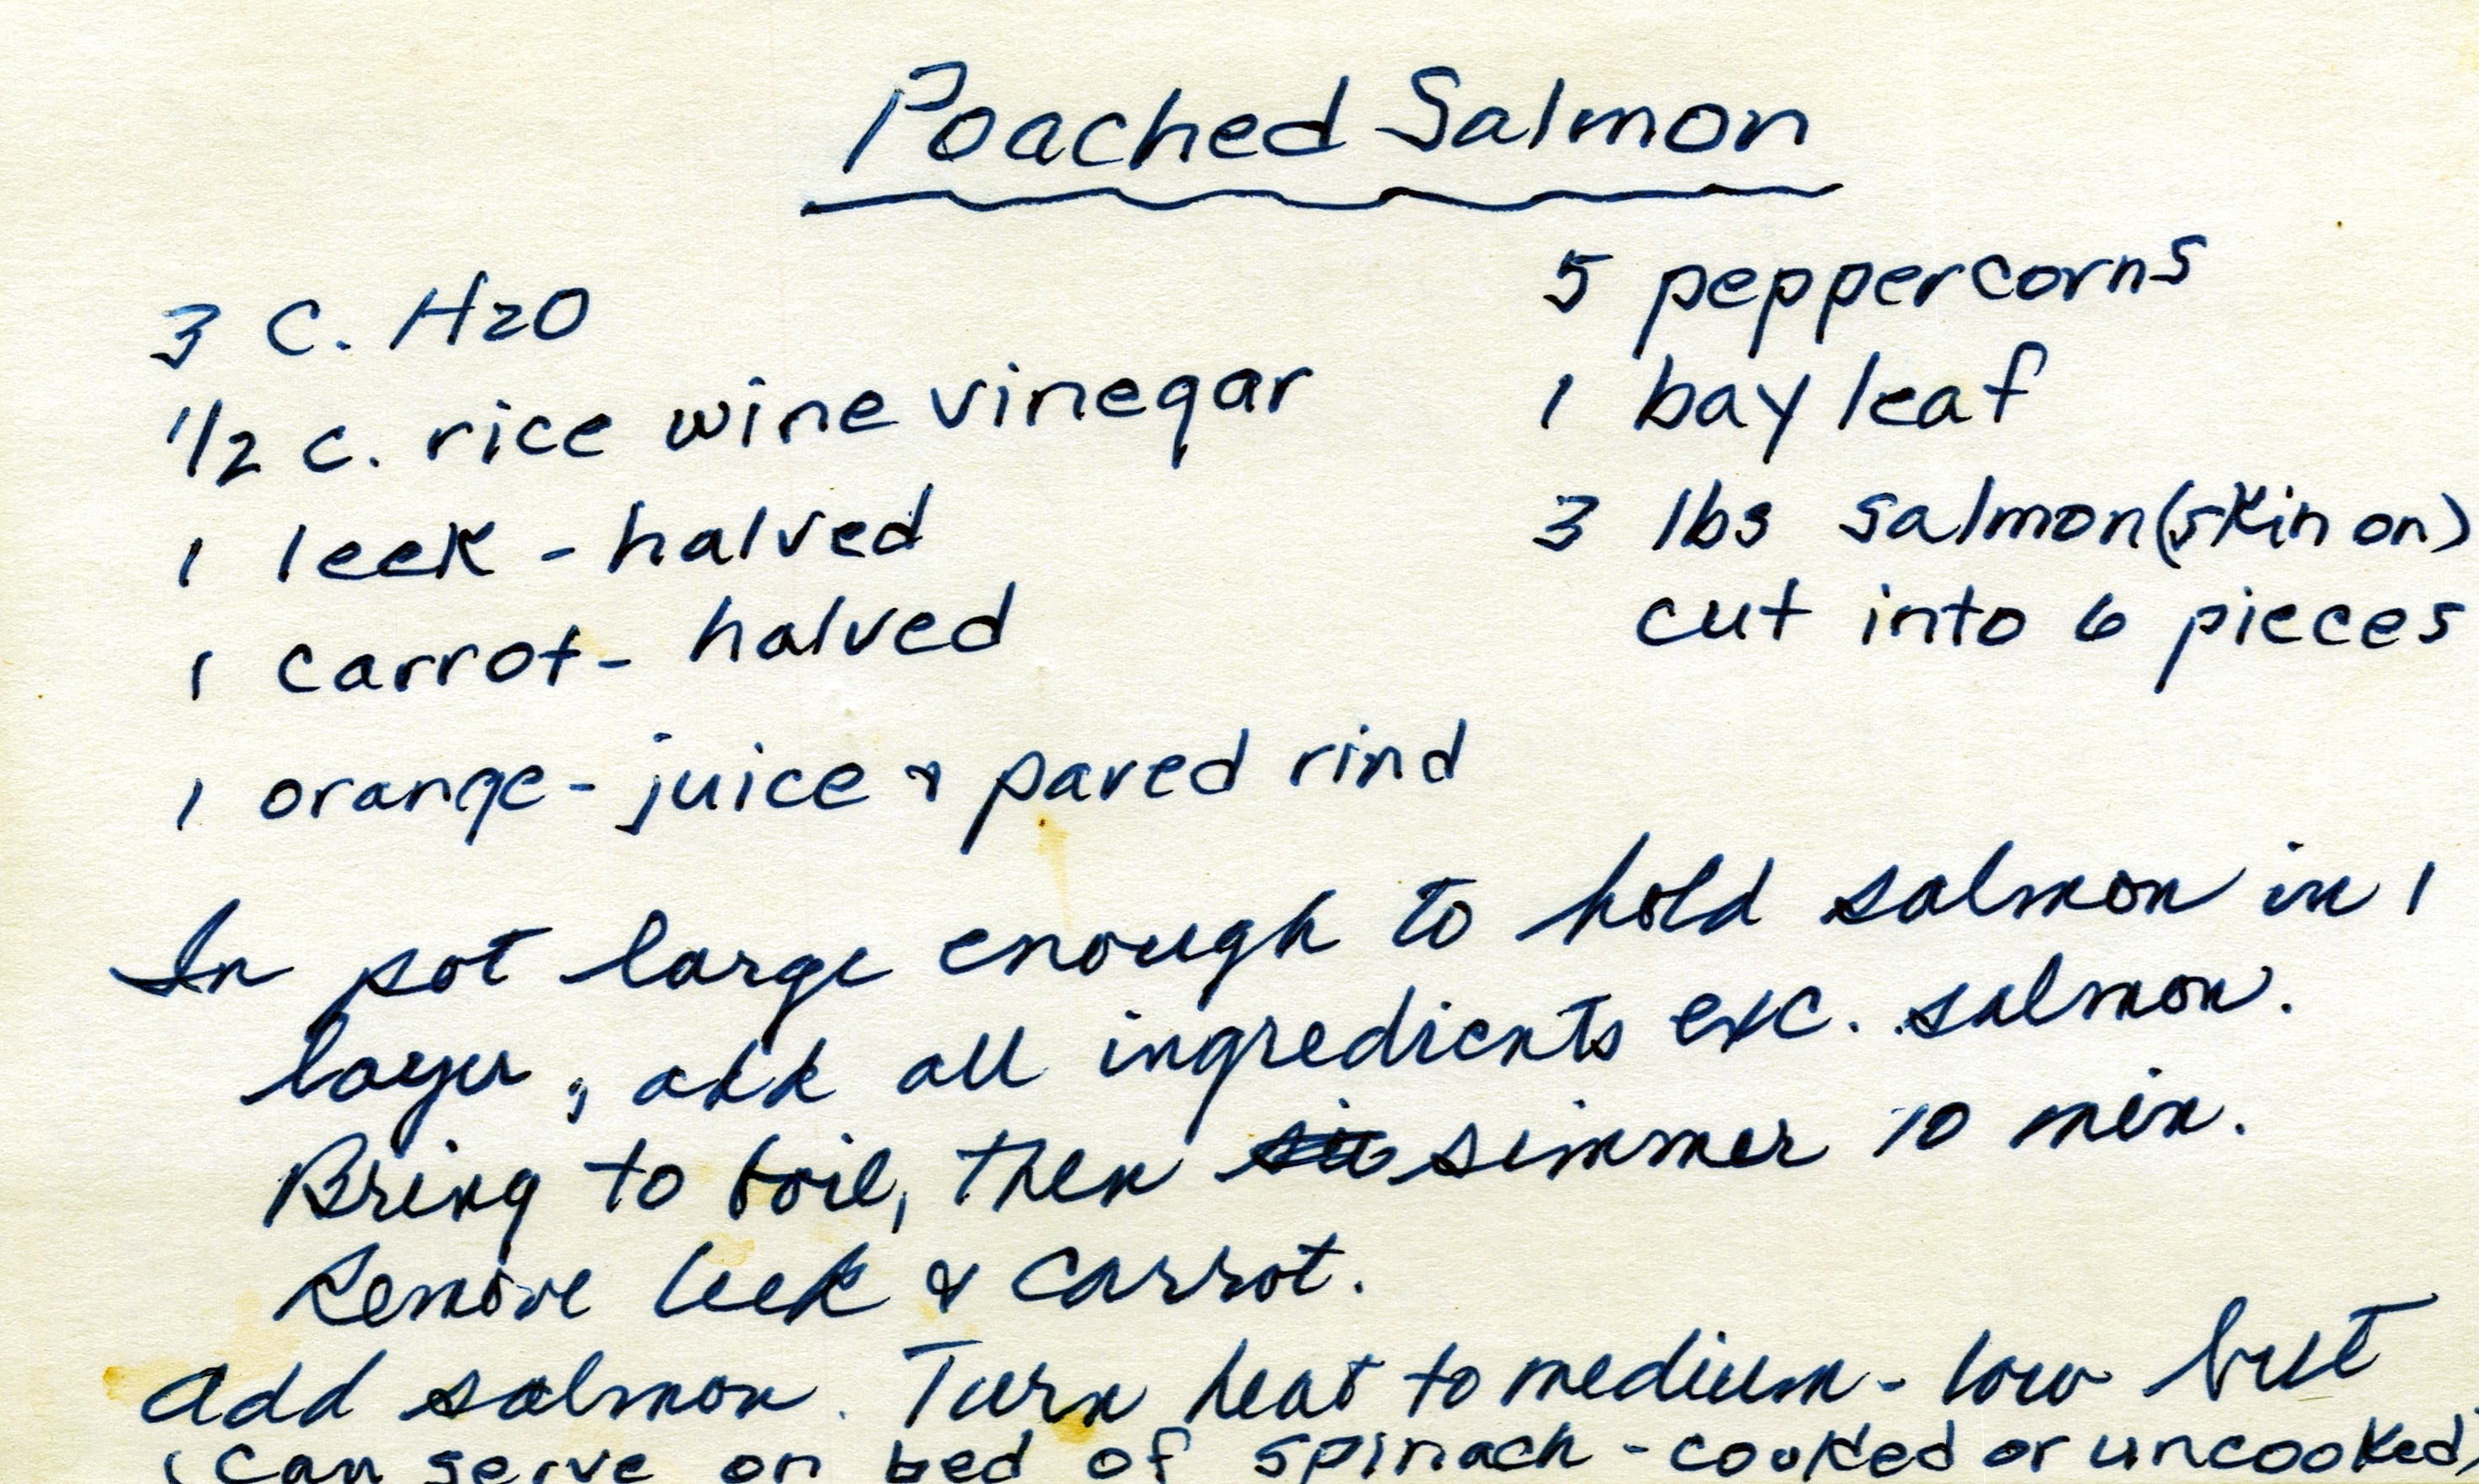 Poached Salmon
3 C. H2O
1/2 c. rice wine vinegar
1 leek - halved
1 carrot - halved
1 orange - juice & pared rind
5 peppercorns
1 bay leaf
3 lbs salmon (skin on)
cut into 6 pieces
In pot large enough to hold salmon in 1
layer, add all ingredients exc. salmon.
Bring to boil, then simmer 10 min.
Remove leek & carrot.
Add salmon. Turn heat to medium-low but
(can serve on bed of spinach - cooked or uncooked)